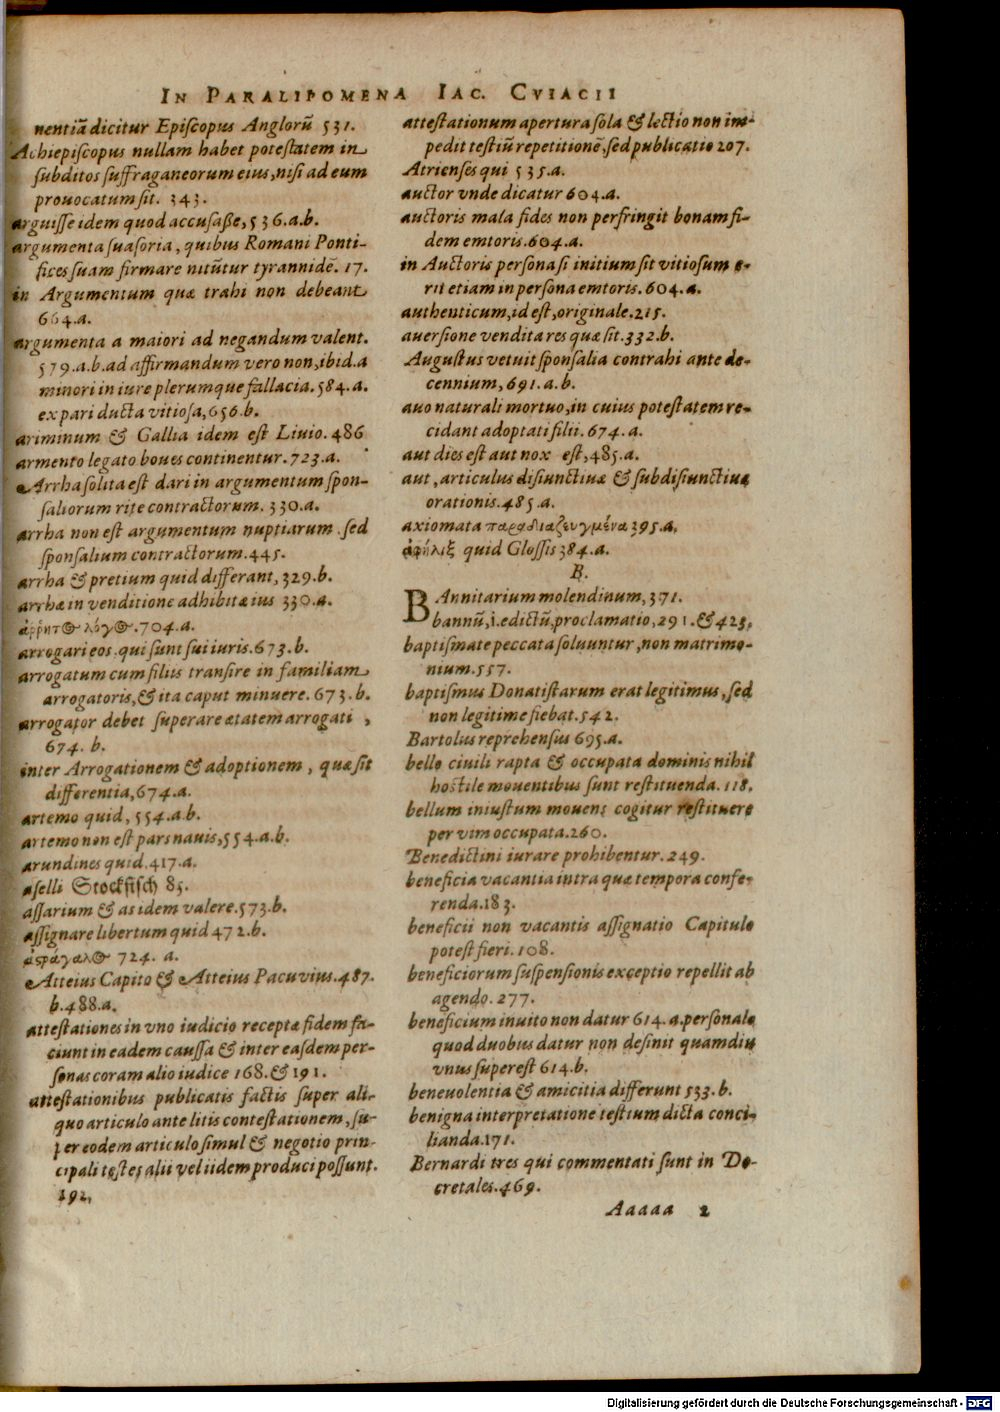 IN PARALIPOMENA IAC. CVIACII
nentiā dicitur Episcopus Anglorū 531.
Achiepiscopus nullam habet potestatem in
subditos suffraganeorum eius, nisi ad eum
prouocatum sit. 343.
arguisse idem quod accusaße, 536.a.b.
argumenta suasoria, quibus Romani Ponti-
fices suam firmare nitūtur tyrannidē. 17.
in Argumentum quæ trahi non debeant
664.a.
argumenta a maiori ad negandum valent.
579.a.b. ad affirmandum vero non, ibid.a
minori in iure plerumque fallacia. 584.a.
ex pari ducta vitiosa, 656.b.
ariminum & Gallia idem est Liuio. 486
armento legato boues continentur. 723.a.
Arrha solita est dari in argumentum spon-
saliorum rite contractorum. 330.a.
arrha non est argumentum nuptiarum sed
sponsalium contractorum. 445.
arrha & pretium quid differant, 329.b.
arrhæ in venditione adhibitæ ius 330.a.
ἀῤῥήτῳ λόγῳ. 704.a.
arrogari eos qui sunt sui iuris. 673.b.
arrogatum cum filiis transire in familiam
arrogatoris, & ita caput minuere. 673.b.
arrogator debet superare ætatem arrogati,
674. b.
inter Arrogationem & adoptionem, quæ sit
differentia, 674.a.
artemo quid, 554.a.b.
artemo non est pars nauis, 554.a.b.
arundines quid. 417.a.
aselli Stockfisch 85.
assarium & as idem valere. 573.b.
assignare libertum quid 472.b.
724. a.
Atteius Capito & Atteius Pacuvius. 487.
b. 488.a.
attestationes in vno iudicio receptæ fidem fa-
ciunt in eadem caussa & inter easdem per-
sonas coram alio iudice 168. & 191.
attestationibus publicatis factis super ali-
quo articulo ante litis contestationem, su-
per eodem articulo simul & negotio prin-
cipali testes alii vel iidem produci possunt.
192,
attestationum apertura sola & lectio non im-
pedit testiū repetitionē, sed publicatio 207.
Atrienses qui 535.a.
auctor vnde dicatur 604.a.
auctoris mala fides non perfringit bonam fi-
dem emtoris. 604.a.
in Auctoris persona si initium sit vitiosum e-
rit etiam in persona emtoris. 604.a.
authenticum, id est, originale. 215.
auersione vendita res quæ sit. 332.b.
Augustus vetuit sponsalia contrahi ante de-
cennium, 691.a.b.
auo naturali mortuo, in cuius potestatem re-
cidant adoptati filii. 674.a.
aut dies est aut nox est, 485.a.
aut, articulus disiunctiuæ & subdisiunctiuæ
orationis. 485.a.
axiomata παραδιαζευγμένα 395.a.
ἀφήλιξ quid Glossis 384.a.
B.
BAnnitarium molendinum, 371.
bannū, i. edictū, proclamatio, 291. & 425.
baptismate peccata soluuntur, non matrimo-
nium. 557.
baptismus Donatistarum erat legitimus, sed
non legitime fiebat. 542.
Bartolus reprehensus 695.a.
bello ciuili rapta & occupata dominis nihil
hostile mouentibus sunt restituenda. 118.
bellum iniustum mouens cogitur restituere
per vim occupata. 260.
Benedictini iurare prohibentur. 249.
beneficia vacantia intra quæ tempora confe-
renda. 183.
beneficii non vacantis assignatio Capitulo
potest fieri. 108.
beneficiorum suspensionis exceptio repellit ab
agendo. 277.
beneficium inuito non datur 614. a. personale
quod duobus datur non desinit quamdiu
vnus superest 614.b.
beneuolentia & amicitia differunt 533.b.
benigna interpretatione testium dicta conci-
lianda. 171.
Bernardi tres qui commentati sunt in De-
cretales. 469.
Aaaaa 2
Digitalisierung gefördert durch die Deutsche Forschungsgemeinschaft - DFG